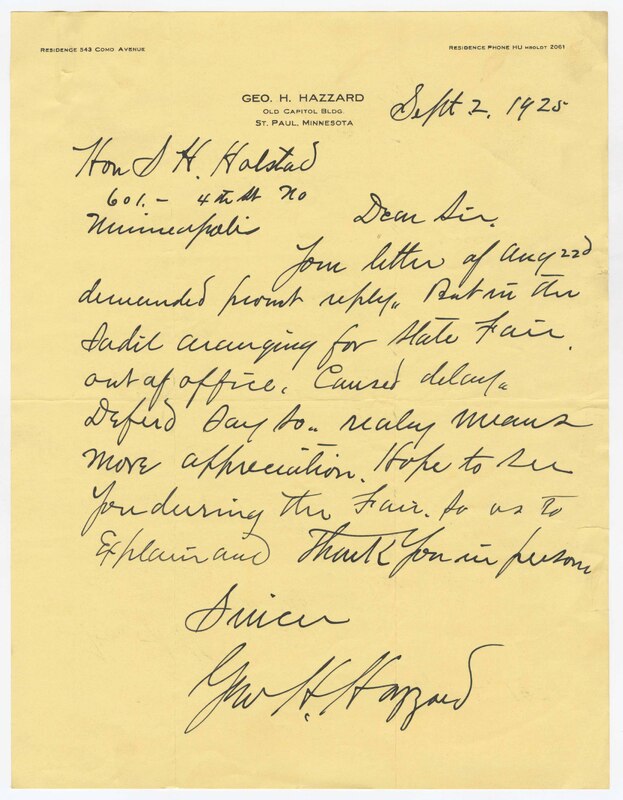 RESIDENCE 543 COMO AVENUE
RESIDENCE PHONE HUMBOLDT 2061
GEO. H. HAZZARD
OLD CAPITOL BLDG.
ST. PAUL, MINNESOTA
Sept 2, 1925
Hon S H. Holstad
601.- 4th St No
Minneapolis
Dear Sir.
Your letter of Aug 22d
demanded promt reply. But in the
arranging for State Fair.
out of office. Caused delay.
Deferd say so. realey means
more appreciation. Hope to see
you during the Fair. so as to
Explain and Thank You in person
Sincer
Geo H. Hazzard